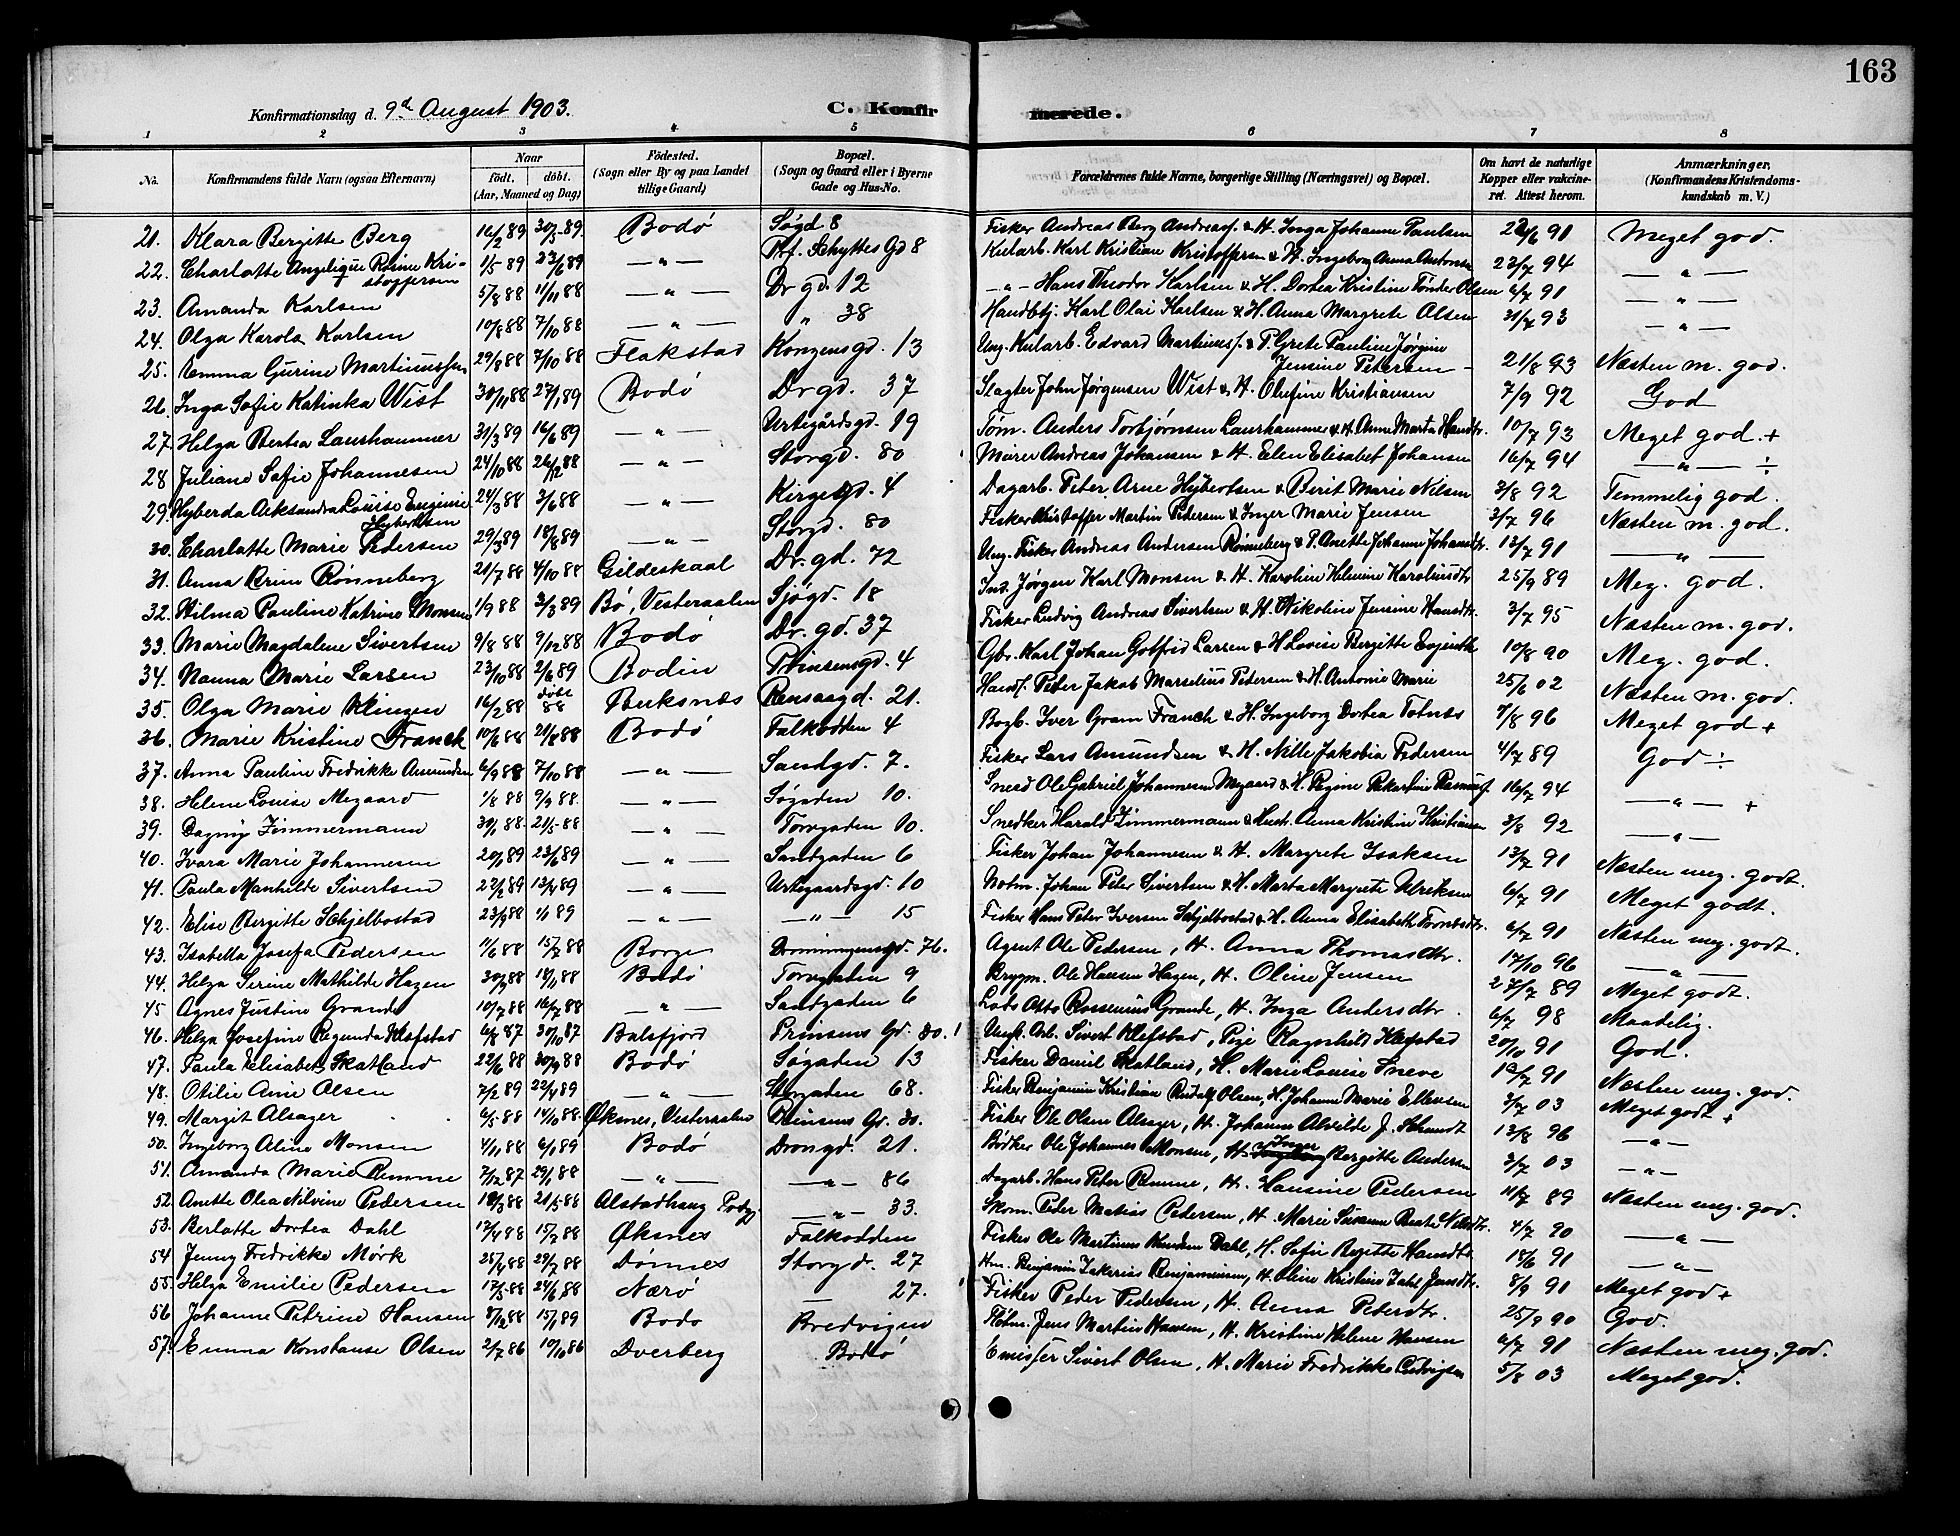 163
Konfirmationsdag d. 9de August 1903. C. Konfirmerede.
1 2 3 4 5 6 7 8
No. Konfirmandens fulde Navn (ogsaa Efternavn) Naar födt. döbt. (Aar, Maaned og Dag) Födested. (Sogn eller By og paa Landet tillige Gaard) Bopæl. (Sogn og Gaard eller i Byerne Gade og Hus-No. Forældrenes fulde Navne, borgerlige Stilling (Næringsvei) og Bopæl. Om havt de naturlige Kopper eller vakcineret. Attest herom. Anmærkninger, (Konfirmandens Kristendomskundskab m. V.)
21. Klara Bergitte Berg 16/2 89 30/3 89. Bodö Søgd 8 Fisker Andreas Berg Andreas. & H. Inga Johanne Paulsen 22/6 91 Meget god.
22. Charlotte Angelique Rosine Kristoffersen 1/5 89 23/6 89 — " — Rf. Schyttes Gd 8 Kularb. Karl Kristian Kristoffersen & H. Ingeborg Anna Antonsen 23/7 94 — " —
23. Amanda Karlsen 5/8 88 11/11 88 — " — Dr gd. 12 — " — Hans Theodor Karlsen & H. Dortea Kristine Tønder Olsen 6/7 91 — " —
24. Olga Karola Karlsen 10/8 88 7/10 88 — " — " 38 Handbtj. Karl Olai Karlsen & H. Anna Margrete Olsen 31/7 93 — " —
25. Emma Gurine Martinussen 29/8 88 7/10 88 Flakstad Kongensgd. 13 Ung. Kularb. Edvard Martinus. & P. Grete Pauline Jørgine Jensine Petersen 21/8 93 Næsten m. god.
26. Inga Sofie Katinka Wist 30/11 88 27/1 89 Bodö Dr gd. 37 Slagter John Jørgensen Wist & H. Olefine Kristiansen 7/9 92 God
27. Helga Bertea Laushammer 31/3 89 16/6 89 — " — Urtegårdsgd. 19 Tøm. Anders Torbjørnsen Laushammer & H. Anne Marta Hansdtr. 10/7 93 Meget god. +
28 Juliane Sofie Johannesen 24/10 88 26/12 88 — " — Storgd. 80 Murer Andreas Johansen & H. Elen Elisabet Johansen 16/7 94 — " — ÷
29. Hyberda Aleksandra Louise Eugenie Hybertsen 24/3 88 3/6 88 — " — Kirgegd. 4 Dagarb. Peter Arne Hybertsen & Berit Marie Nilsen 3/8 92 Temmelig god.
30. Charlotte Marie Pedersen 29/3 89 18/8 89 — " — Storgd. 80 Fisker Kristoffer Martin Pedersen & Inger Marie Jensen 3/7 96 Næsten m. god.
31. Anna Rønneberg 21/7 88 4/10 88 Gildeskaal Dr. gd. 72 Ung. Fisker Andreas Andersen Rønneberg & P. Anette Johanne Johansdtr. 13/7 91 — " —
32. Hilma Pauline Katrine Monsen 1/9 88 3/3 89 Bø, Vesteraalen Sjøgd. 18 Ind. Jørgen Karl Monsen & H. Karoline Helmine Karoliusdtr 25/9 89 Meg. god.
33. Marie Magdalene Sivertsen 9/8 88 9/12 88 Bodö Dr. gd. 37 Fisker Ludvig Andreas Sivertsen & H. Nikoline Jensine Hansdtr. 3/7 95 Næsten m. god.
34. Nanna Marie Larsen 23/10 88 2/6 89 Bodin Prinsensgd. 4 Gbr. Karl Johan Gotfred Larsen & H. Lovise Bergitte Evjenth 10/8 90 Meg. god.
35. Olga Marie Klingen 16/2 88 döbt 88 Buksnæs Rensaagd. 21. Handl. Peter Jakob Marselius Pedersen & H. Antonie Marie 25/6 02 Næsten m. god.
36. Marie Kristine Franck 10/6 88 21/8 88 Bodö Falkodden 4 Bogb. Iver Gram Franck & H. Ingeborg Dortea Totnæs 7/8 96 Meget god +
37. Anna Pauline Fredrikke Amundsen 6/9 88 7/10 88 — " — Sandgd. 7. Fisker Lars Amundsen & H. Nille Jakobia Pedersen 4/7 89 God ÷
38. Helene Louise Megaard 1/8 88 9/9 88. — " — Søgaden 10. Sned Ole Gabriel Johannesen Megaard & H. Regine Rekartine Rasmus. 16/7 94 — " — +
39. Dagny Zimmermann 30/1 88. 21/5 88 — " — Torvgaden 10. Snedker Harald Zimmermann & Hust. Anna Kristine Kristiansen 3/8 92 — " —
40. Ivara Marie Johannesen 20/1 89 23/6 89 — " — Sandgaden 6 Fisker Johan Johannesen & H. Margrete Isaksen 13/7 91 Næsten meg. godt.
41. Paula Manhilde Sivertsen 22/2 89 13/4 89 — " — Urtegaardsgd. 10 Notm. Johan Peter Sivertsen & H. Marta Margrete Ulriksen 6/7 91 Meget godt.
42. Elise Bergitte Schjelbostad 23/9 88 1/1 89 — " — — " — 15 Fisker Hans Peter Iversen Schjelbostad & H. Anna Elisabeth Trondsdtr. 6/7 91 Næsten meg. godt.
43. Isabella Josefa Pedersen 11/6 88 15/7 88 Borge Dronningensgd. 76. Agent Ole Pedersen, H. Anna Thomasdtr. 17/10 96 — " —
44. Helga Serine Mathilde Hagen 30/9 88 18/11 88 Bodö Torvgaden 9 Brygm. Ole Hansen Hagen, H. Oline Jensen 27/7 89 Meget godt.
45 Agnes Justine Grande 10/7 88 16/7 88 — " — Sandgaden 6 Lods Otto Rossenius Grande, H. Inga Andersdtr. 6/7 98 Maadelig.
46. Helga Josefine Regunda Klefstad 6/8 87 30/10 87 Balsfjord Prinsens Gd. Do. 1 Ungk. Arb. Sivert Klefstad, Pige Ragnhild Klefstad 20/10 91 God.
47. Paula Elisabet Skatland 22/6 88 30/9 88 Bodö Søgaden 13 Fisker Daniel Skatland, H. Marie Louise Sneve 13/7 91 Næsten meg. god.
48. Otilie Anne Olsen 7/2 89 22/4 89 — " — Storgaden 68. Fisker Benjamin Kristian Rudolf Olsen, H. Johanna Marie Ellevsen 3/7 03 Meget godt +
49. Margit Alsager 6/5 88 14/10 88 Øksnes, Vesteraalen Prinsens Gr. 30. Fisker Ole Olsen Alsager, H. Johanna Alvilde J. Schmidt 12/8 96 — " —
50. Ingeborg Aline Monsen 4/11 88 6/1 89 Bodö Drongd. 21. Bødker Ole Johannes Monsen, H. Inger Bergitte Andersen 3/7 03 — " —
51. Amanda Marie Remme 7/12 87 29/1 88 — " — — " — 86 Dagarb. Hans Peter Remme, H. Hansine Pedersen 11/7 89 Næsten meg. god.
52. Anette Olea Nilvine Pedersen 18/3 88 21/5 88 Alstadhaug — " — 33. Skom. Peder Matias Pedersen, H. Marie Susanne Beate Nilsdtr. 4/7 90 — " —
53. Berlotte Dortea Dahl 12/4 88 15/7 88 Øksnes Falkodden Fisker Ole Martinus Knudsen Dahl, H. Sofie Bergitte Hansdtr. 18/6 91 — " —
54 Jenny Fredrikke Mørk 25/4 88 29/7 88 Dønnes Storgd. 27 Hm. Benjamin Zakarias Benjaminsen, H. Oline Kristine Dahl Jensdtr. 8/9 91 Meget god +
55. Helga Emilie Pedersen 17/5 88 24/6 88 Nærø — 27. Fisker Peder Pedersen, H. Anna Petersdtr. 25/9 90 God.
56 Johanne Petrine Hansen 8/12 88 15/1 89 Bodö Bredvigen Jens Martin Hansen, H. Kristine Helene Hansen 6/7 91 Næsten meg. god.
57. Emma Konstanse Olsen 2/7 86 10/10 86 Dverberg Bodö Emissær Sivert Olsen, H. Marie Fredrikke Ludvigsen 5/8 03 Meget god.